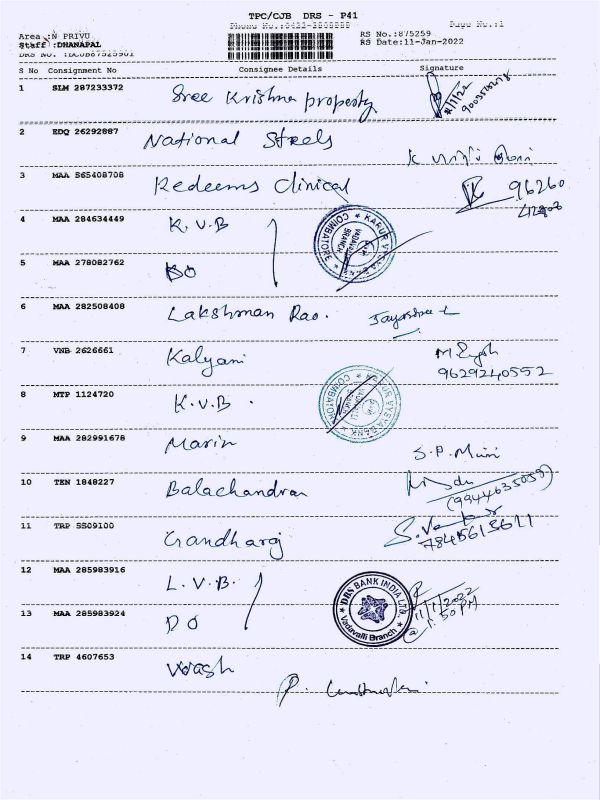 TPC/CJB DRS - P41
Area :N PRIVU
RS No.:875259
Staff :DHANAPAL
RS Date:11-Jan-2022
S No Consignment No Consignee Details Signature
1 SLM 287233372 Sree Krishna property
2 EDQ 26292887 National Steels
3 MAA 565408708 Redeems Clinical 96260
4 MAA 284634449 K.V.B
KARUR VYSYA BANK COIMBATORE
5 MAA 278082762 DO
6 MAA 282508408 Lakshman Rao. Jayashree
7 VNB 2626661 Kalyani
9629240552
8 MTP 1124720 K.V.B.
KARUR VYSYA BANK COIMBATORE
9 MAA 282991678 Marin S.P.
10 TEN 1848227 Balachandran
(9944635059)
11 TRP 5509100 Gandharaj
7845615611
12 MAA 285983916 L.V.B.
DBS BANK INDIA LTD. Vadavalli Branch
11/1/2022
13 MAA 285983924 DO
@ 1.50 PM
14 TRP 4607653